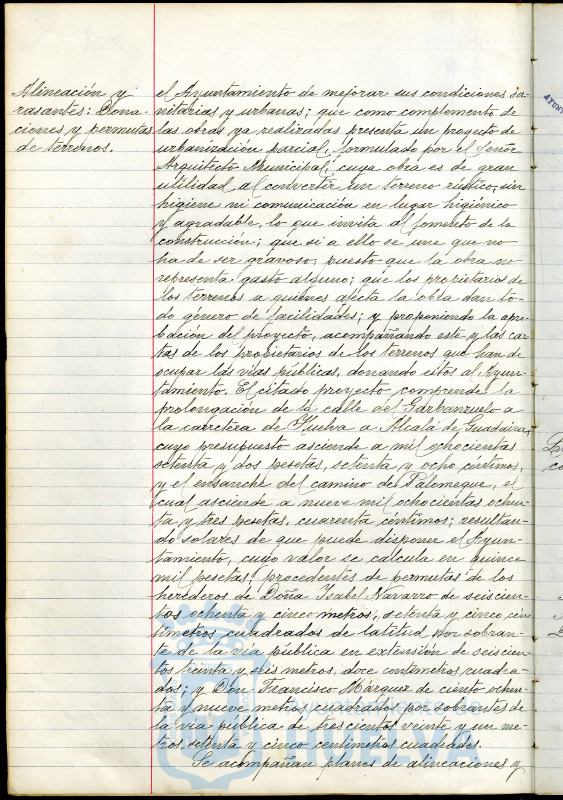 Alineación y
rasantes: Dona-
ciones y permutas
de terrenos.
el Ayuntamiento de mejorar sus condiciones sa-
nitarias y urbanas; que como complemento de
las obras ya realizadas presenta un proyecto de
urbanización parcial, formulado por el Señor
Arquitecto Municipal, cuya obra es de gran
utilidad al convertir un terreno rústico, sin
higiene ni comunicación en lugar higiénico
y agradable, lo que invita al fomento de la
construcción; que si a ello se une que no
ha de ser gravoso, puesto que la obra no
representa gasto alguno; que los propietarios de
los terrenos a quienes afecta la obra dan to-
do género de facilidades; y proponiendo la apro-
bación del proyecto, acompañando este y las car-
tas de los propietarios de los terrenos que han de
ocupar las vías públicas, donando estos al Ayun-
tamiento. El citado proyecto comprende la
prolongación de la calle del Garbanzuelo a
la carretera de Huelva a Alcalá de Guadaira,
cuyo presupuesto asciende a mil ochocientas
setenta y dos pesetas, setenta y ocho céntimos,
y el ensanche del camino de Palomeque, el
cual asciende a nueve mil ochocientas ochen-
ta y tres pesetas, cuarenta céntimos; resultan-
do solares de que puede disponer el Ayun-
tamiento, cuyo valor se calcula en quince
mil pesetas, procedentes de permutas de los
herederos de Doña Isabel Navarro de seiscien-
tos ochenta y cinco metros, setenta y cinco cen-
tímetros cuadrados de latitud por sobran-
te de la vía pública en extensión de seiscien-
tos treinta y seis metros, doce centímetros cuadra-
dos; y Don Francisco Márquez de ciento ochen-
ta y nueve metros cuadrados por sobrantes de
la vía pública de trescientos veinte y un me-
tros, setenta y cinco centímetros cuadrados.
Se acompañan planos de alineaciones y